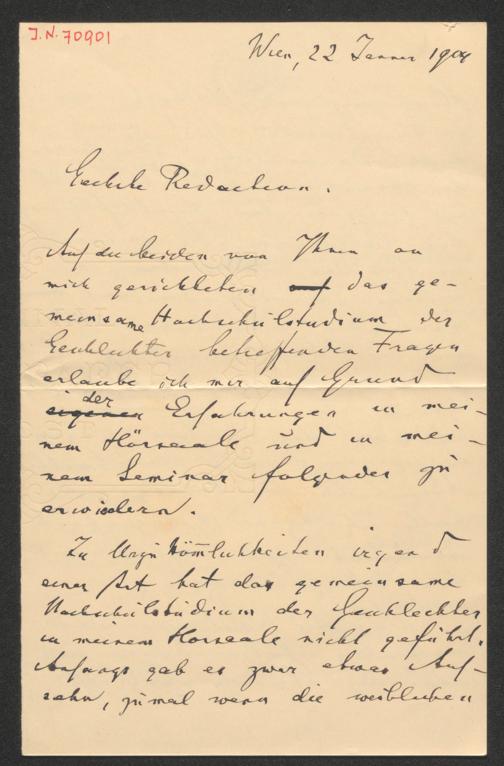 J.N. 70901
Wien, 22 Jänner 1904
Geehrte Redaction.
Auf die beiden von Ihnen an
mich gerichteten auf das ge-
meinsame Hochschulstudium der
Geschlechter betreffenden Fragen
erlaube ich mir auf Grund
der
eigenen Erfahrungen in mei-
nem Hörsaale und in mei-
nem Seminar folgendes zu
erwiedern.
Zu Unzukömmlichkeiten irgend
einer Art hat das gemeinsame
Hochschulstudium der Geschlechter
in meinem Hörsaale nicht geführt.
Anfangs gab es zwar etwas Auf-
sehn, zumal wenn die weiblichen